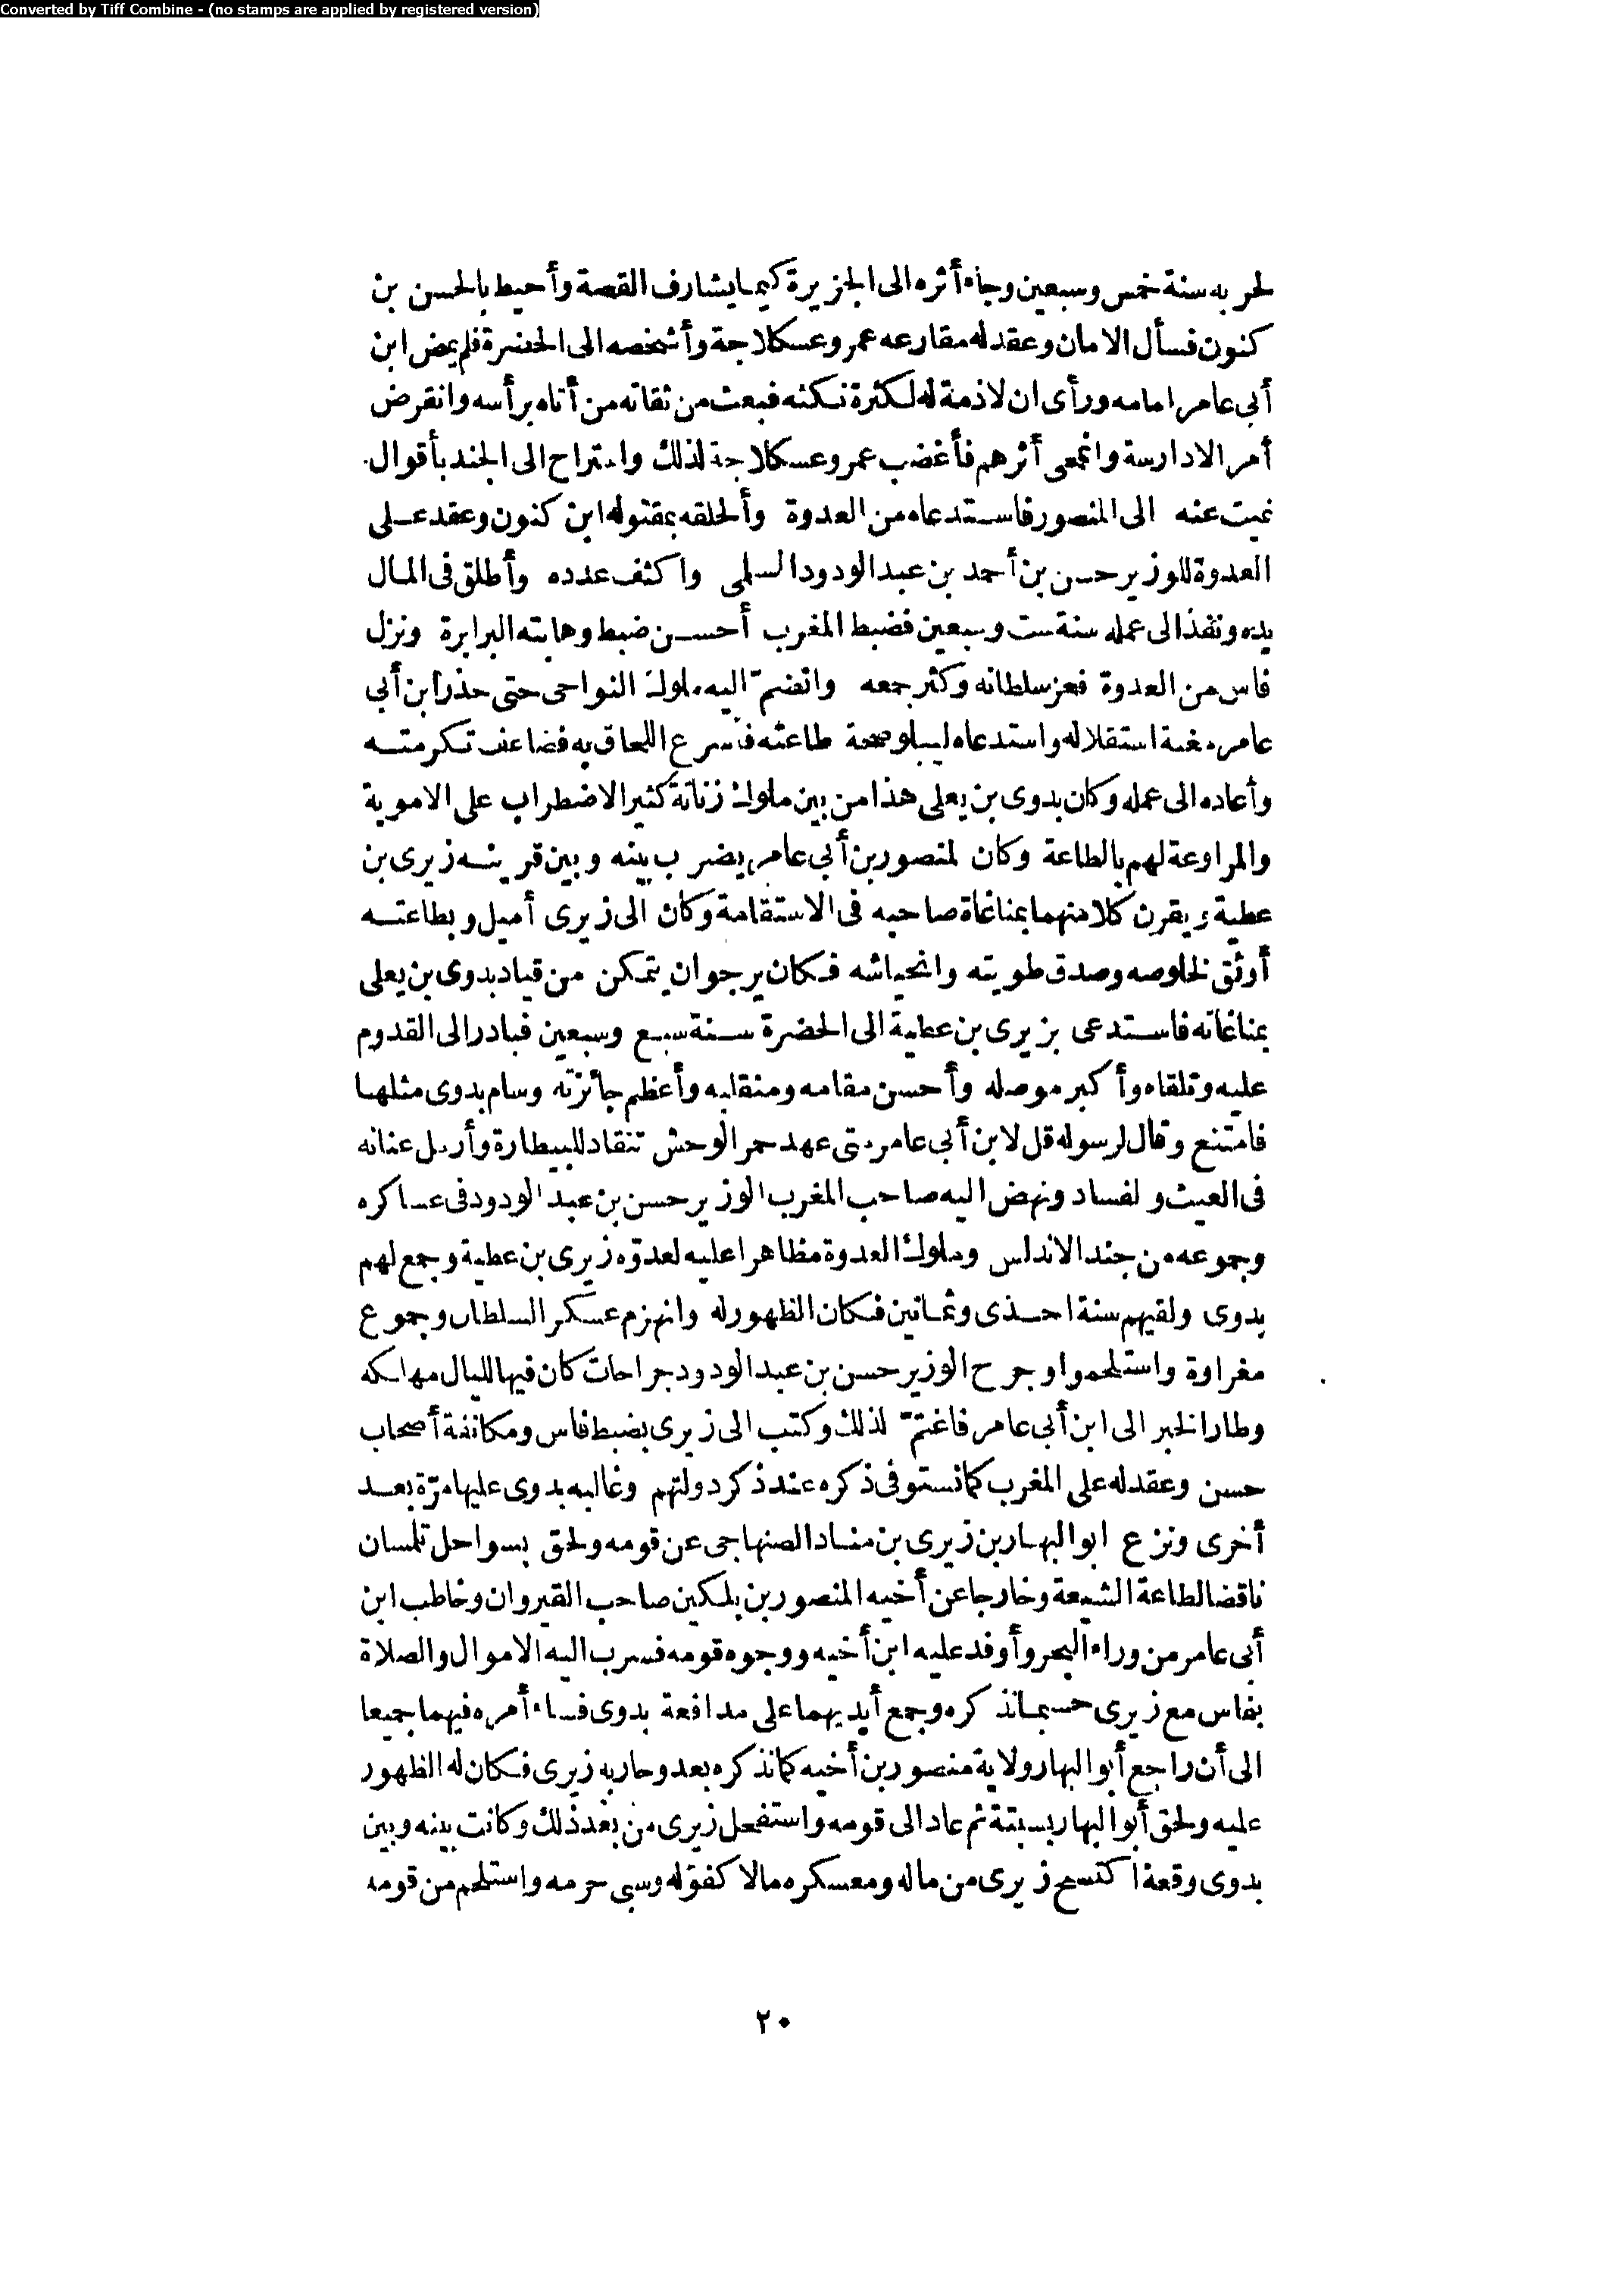 Converted by Tiff Combine - (no stamps are applied by registered version)
لحربه سنة خمس وسبعين وجاء أثره الى الجزيرة كيما يشارف القصة وأحيط بالحسن بن
كنون فسأل الامان وعقد له مقارعه عمرو عسكلاجة وأشخصه الى الحضرة فلم يمض ابن
أبى عامر امامه ورأى ان لا ذمة له لكثرة نكثه فبعث من ثقاته من أتاه برأسه وانقرض
أمر الادارسة وانمحى أثرهم فأغضب عمرو عسكلاجة لذلك واستراح الى الجند بأقوال
نميت عنه الى المنصور فاستدعاه من العدوة وألحقه بمقتوله ابن كنون وعقد على
العدوة للوزير حسن بن أحمد بن عبد الودود السلمى واكثف عدده وأطلق فى المال
يده ونفذ الى عمله سنة ست وسبعين فضبط المغرب أحسن ضبط وهابته البرابرة ونزل
فاس من العدوة فعز سلطانه وكثر جمعه وانضمّ اليه ملوك النواحى حتى حذر ابن أبى
عامر مغبة استقلاله واستدعاه ليبلو صحة طاعته فأسرع اللحاق به فضاعف تكرمته
وأعاده الى عمله وكان بدوى بن يعلى هذا من بين ملوك زناتة كثير الاضطراب على الاموية
والمراوغة لهم بالطاعة وكان لمنصور بن أبى عامر يضرب بينه وبين قرينه زيرى بن
عطية ويقرن كلا منهما بمناغاة صاحبه فى الاستقامة وكان الى زيرى أميل وبطاعته
أوثق لخلوصه وصدق طويته وانحياشه فكان يرجو ان يتمكن من قياد بدوى بن يعلى
بمناغاته فاستدعى بزيرى بن عطية الى الحضرة سنة سبع وسبعين فبادر الى القدوم
عليه وتلقاه وأكبر موصله وأحسن مقامه ومنقلبه وأعظم جائزته وسام بدوى مثلها
فامتنع وقال لرسوله قل لابن أبى عامر متى عهد حمر الوحش تنقاد للبيطارة وأرسل عنانه
فى العيث ولفساد ونهض اليه صاحب المغرب الوزير حسن بن عبد الودود فى عساكره
وجموعه من جند الاندلس وملوك العدوة مظاهرا عليه لعدوّه زيرى بن عطية وجمع لهم
بدوى ولقيهم سنة احدى وثمانين فكان الظهور له وانهزم عسكر السلطان وجموع
مغراوة واستلحموا وجرح الوزير حسن بن عبد الودود جراحات كان فيها لليال مهلكه
وطار الخبر الى ابن أبى عامر فاغتمّ لذلك وكتب الى زيرى بضبط فاس ومكانفة أصحاب
حسن وعقد له على المغرب كما نستوفى ذكره عند ذكر دولتهم وغالبه بدوى عليها مرّة بعد
أخرى ونزع ابو البهار بن زيرى بن مناد الصنهاجى عن قومه ولحق بسواحل تلمسان
ناقضا لطاعة الشيعة وخارجا عن أخيه المنصور بن بلكين صاحب القيروان وخاطب ابن
أبى عامر من وراء البحر وأوفد عليه ابن أخيه ووجوه قومه فسرب اليه الاموال والصلاة
بفاس مع زيرى حسبما نذكره وجمع أيديهما على مدافعة بدوى فساء أمره فيهما جميعا
الى أن راجع أبو البهار ولاية منصور بن أخيه كما نذكره بعد وحاربه زيرى فكان له الظهور
عليه ولحق أبو البهار بسبتة ثم عاد الى قومه واستفحل زيرى من بعد ذلك وكانت بينه وبين
بدوى وقعة اكتسح زيرى من ماله ومعسكره مالا كفؤله وسبى حرمه واستلحم من قومه
٢٠